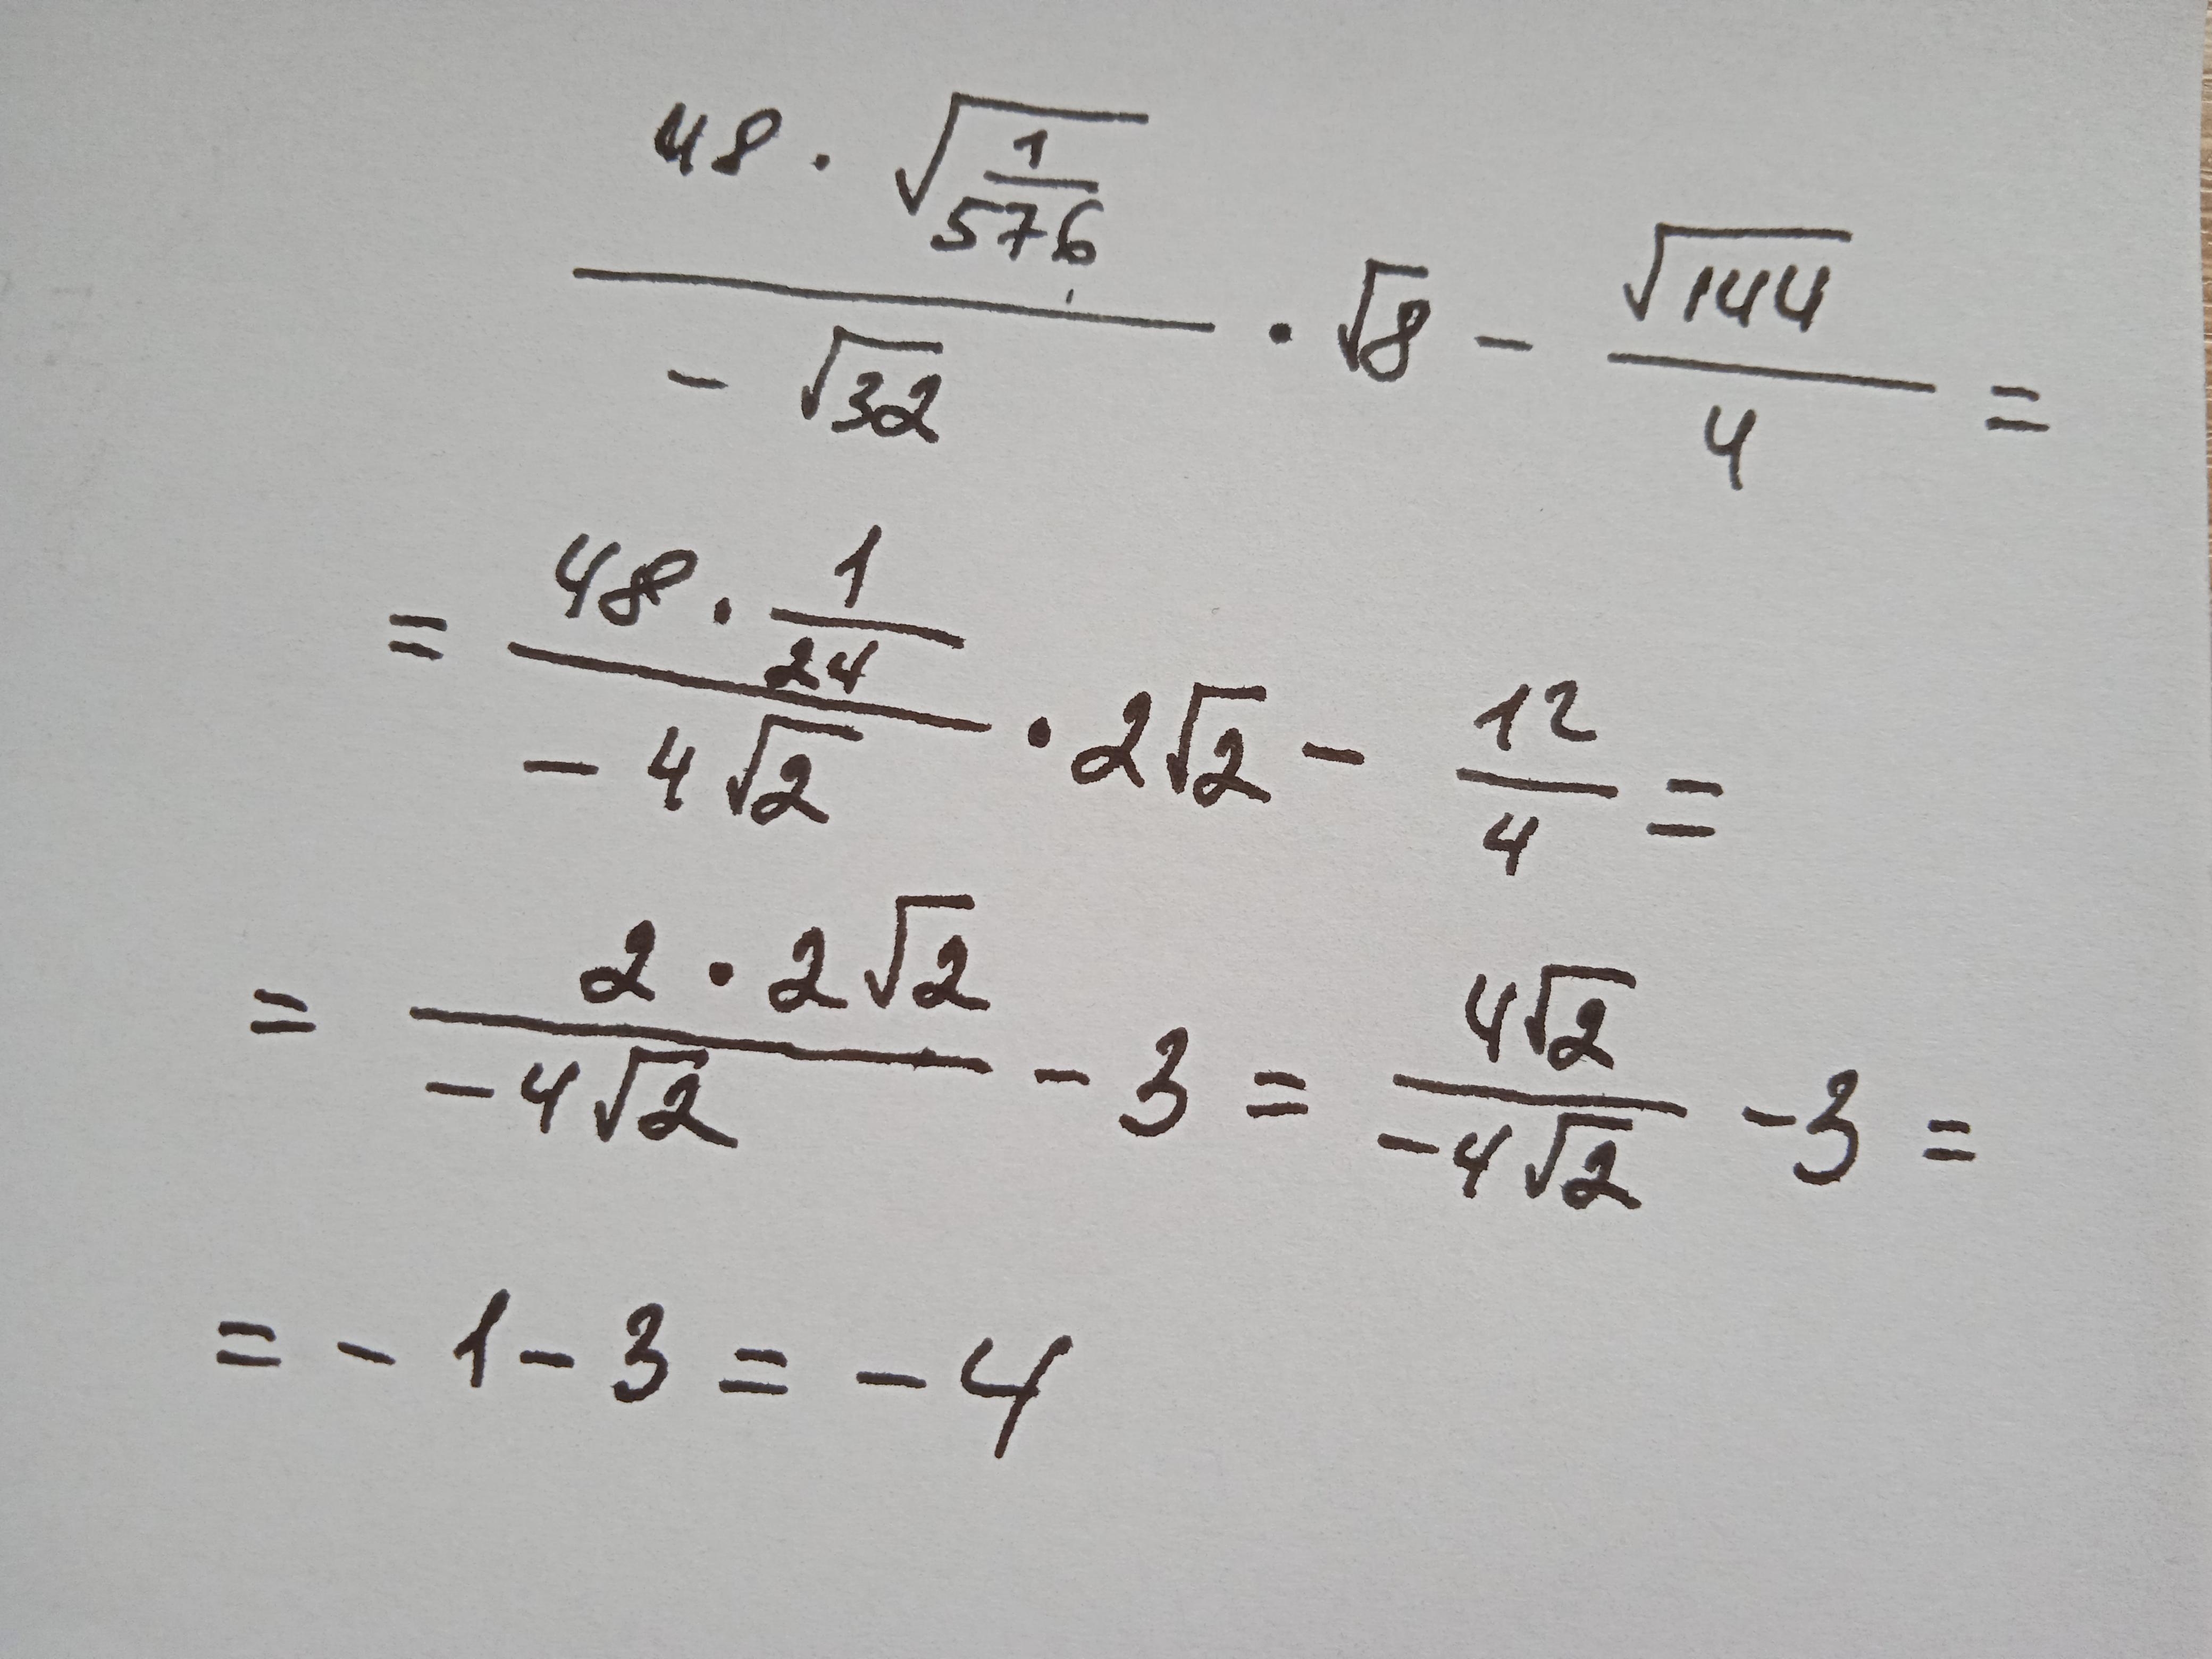 \frac{48 \cdot \sqrt{\frac{1}{576}}}{-\sqrt{32}} \cdot \sqrt{8} - \frac{\sqrt{144}}{4} =
= \frac{48 \cdot \frac{1}{24}}{-4\sqrt{2}} \cdot 2\sqrt{2} - \frac{12}{4} =
= \frac{2 \cdot 2\sqrt{2}}{-4\sqrt{2}} - 3 = \frac{4\sqrt{2}}{-4\sqrt{2}} - 3 =
= -1 - 3 = -4